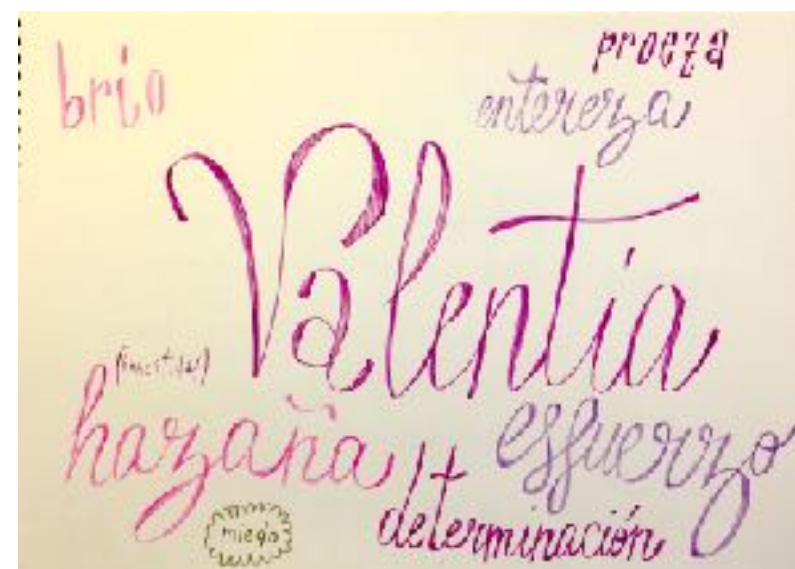 brio
proeza
entereza
Valentía
hazaña
esfuerzo
determinación
miedo